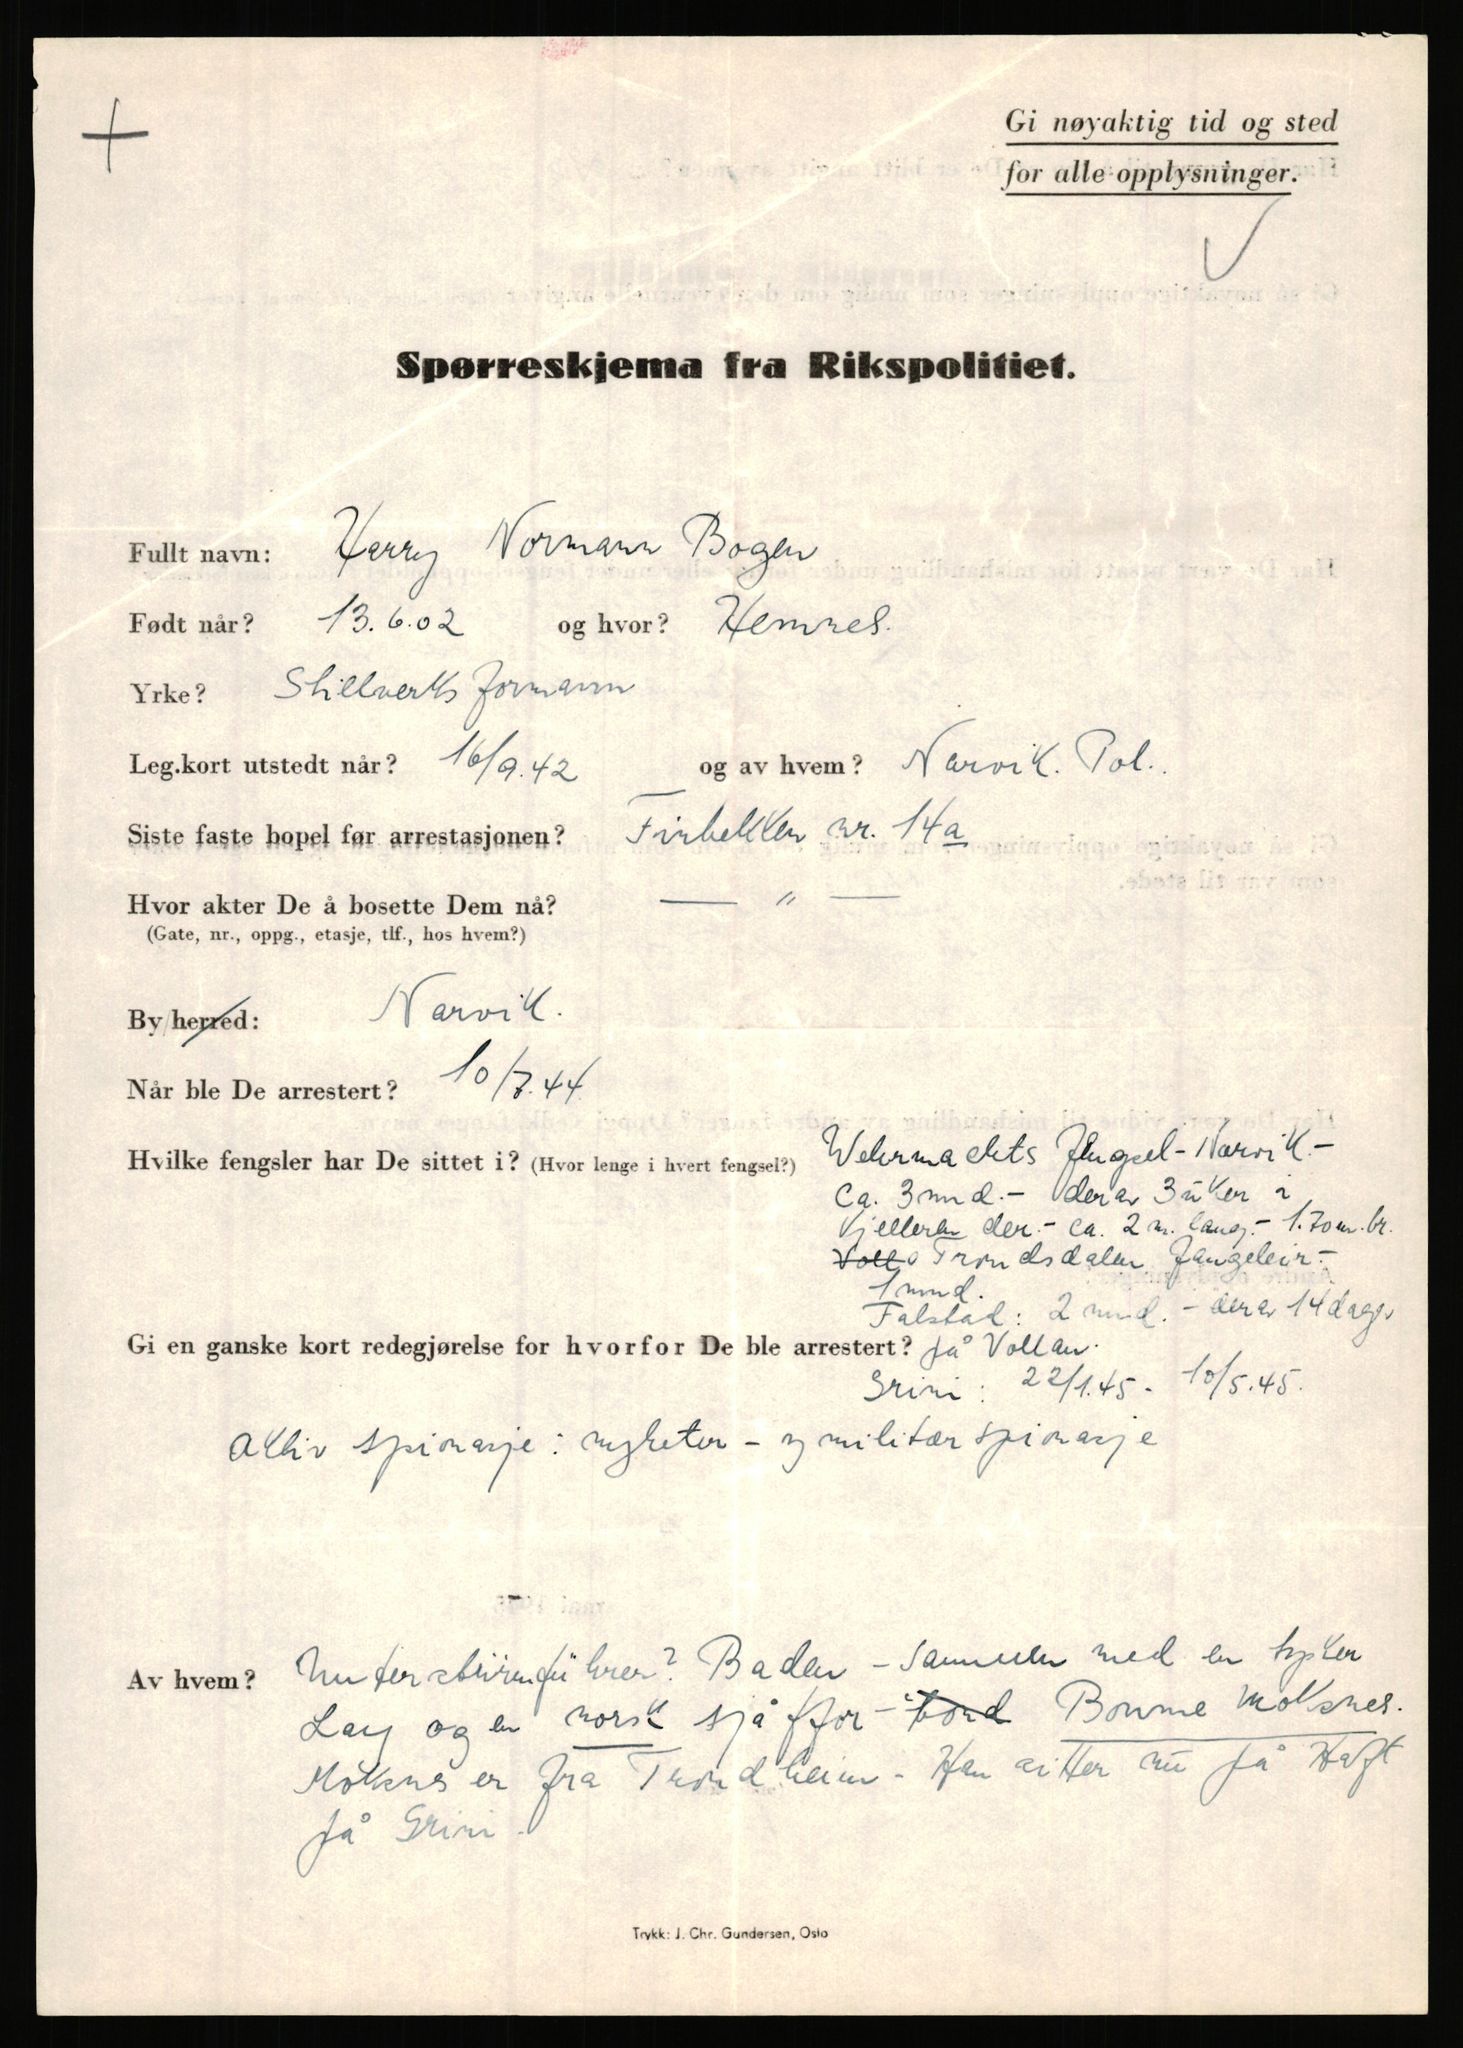 Gi nøyaktig tid og sted
for alle opplysninger.
Spørreskjema fra Rikspolitiet.
Fullt navn: Harry Normann Bogen
Født når? 13.6.02 og hvor? Hemnes.
Yrke? Stillverks formann
Leg.kort utstedt når? 16/9.42 og av hvem? Narvik. Pol.
Siste faste bopel før arrestasjonen? Finbekken nr. 14a
Hvor akter De å bosette Dem nå? — " —
(Gate, nr., oppg., etasje, tlf., hos hvem?)
By/herred: Narvik.
Når ble De arrestert? 10/7.44
Hvilke fengsler har De sittet i? (Hvor lenge i hvert fengsel?) Wehrmachts fengsel - Narvik -
ca. 3 mnd. - derav 3 uker i
kjelleren der. - ca. 2 m. lang. - 1.70 m. br.
Voll Trondsdalen fangeleir -
1 mnd.
Falstad: 2 mnd. - derav 14 dager
Gi en ganske kort redegjørelse for hvorfor De ble arrestert? på Vollan.
Grini: 22/1.45 - 10/5.45.
Aktiv spionasje: nyheter - og militær spionasje
Av hvem? Untersturmführer? Baden - sammen med en tysker
Lay og en norsk sjåffør - Bonne Moksnes.
Moksnes er fra Trondheim - Han sitter nu på Haft
på Grini.
Trykk: J. Chr. Gundersen, Oslo